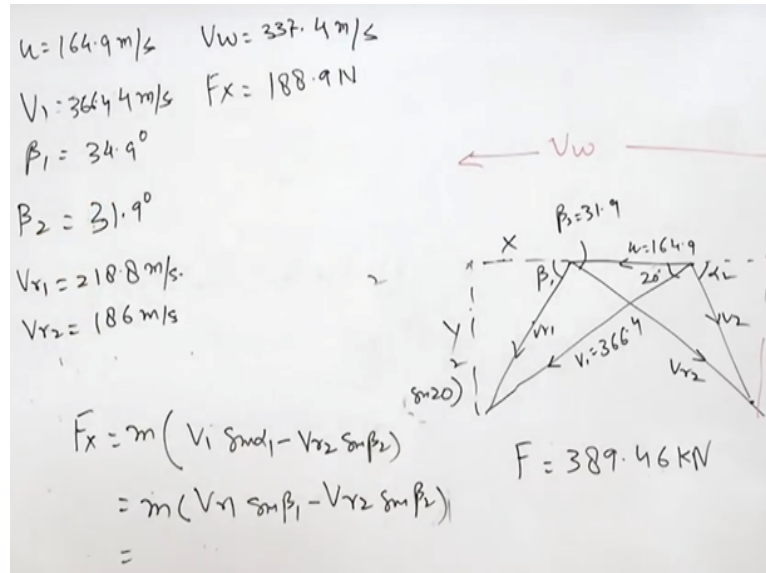 u = 164.9 m/s Vw = 337.4 m/s
V₁ = 366.44 m/s Fx = 188.9 N
β₁ = 34.9°
β₂ = 31.9°
Vr₁ = 218.8 m/s.
Vr₂ = 186 m/s
Vw
β₂ = 31.9
X u = 164.9
β₁ 20° α₂
Y Vr₁ V₁ = 366.4 Vr₂ V₂
2
sin20)
Fx = m ( V₁ sinα₁ - Vr₂ sinβ₂)
= m (Vr₁ sinβ₁ - Vr₂ sinβ₂)
=
F = 389.46 KN